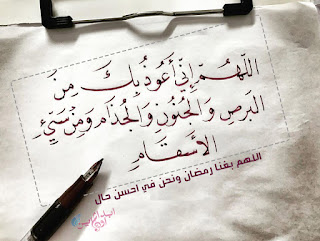 اللَّهُمَّ إِنِّي أَعُوذُ بِكَ مِنَ
البَرَصِ وَالجُنُونِ وَالجُذَامِ وَمِنْ سَيِّئِ
الأَسْقَامِ
اللهم بلغنا رمضان ونحن في احسن حال